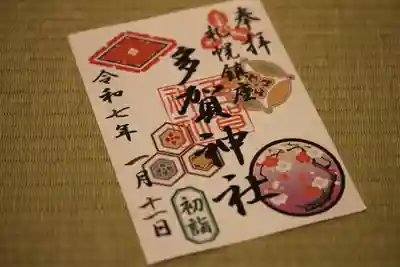 奉拝
札幌鎮座
多賀神社
令和七年
一月十一日
初詣